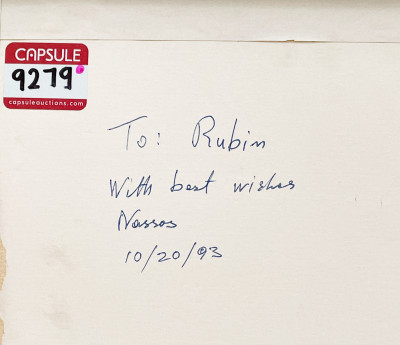 CAPSULE
9279
capsuleauctions.com
To: Rubin
With best wishes
Nassos
10/20/93